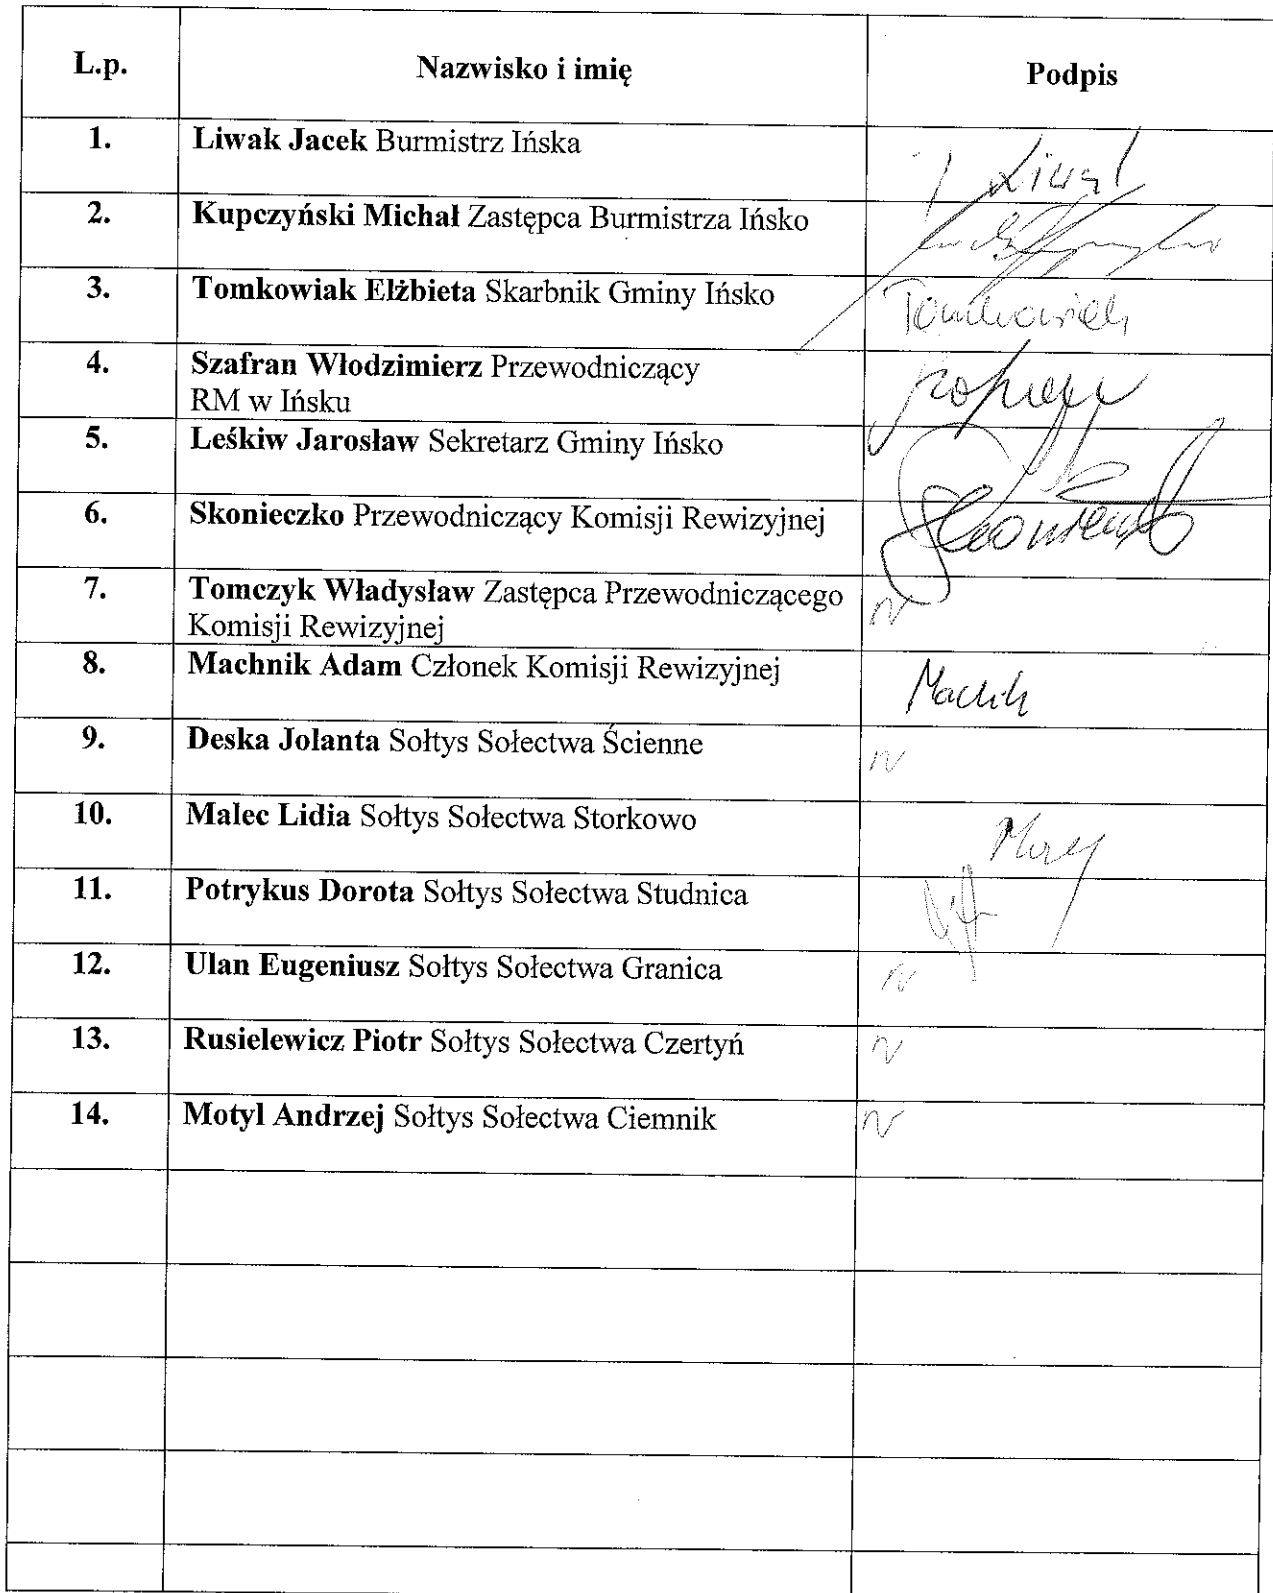 L.p. Nazwisko i imię Podpis
1. Liwak Jacek Burmistrz Ińska J Liwak
2. Kupczyński Michał Zastępca Burmistrza Ińsko
3. Tomkowiak Elżbieta Skarbnik Gminy Ińsko Tomkowiak
4. Szafran Włodzimierz Przewodniczący
RM w Ińsku
5. Leśkiw Jarosław Sekretarz Gminy Ińsko
6. Skonieczko Przewodniczący Komisji Rewizyjnej
7. Tomczyk Władysław Zastępca Przewodniczącego N
Komisji Rewizyjnej
8. Machnik Adam Członek Komisji Rewizyjnej
9. Deska Jolanta Sołtys Sołectwa Ścienne N
10. Malec Lidia Sołtys Sołectwa Storkowo
11. Potrykus Dorota Sołtys Sołectwa Studnica
12. Ulan Eugeniusz Sołtys Sołectwa Granica N
13. Rusielewicz Piotr Sołtys Sołectwa Czertyń N
14. Motyl Andrzej Sołtys Sołectwa Ciemnik N